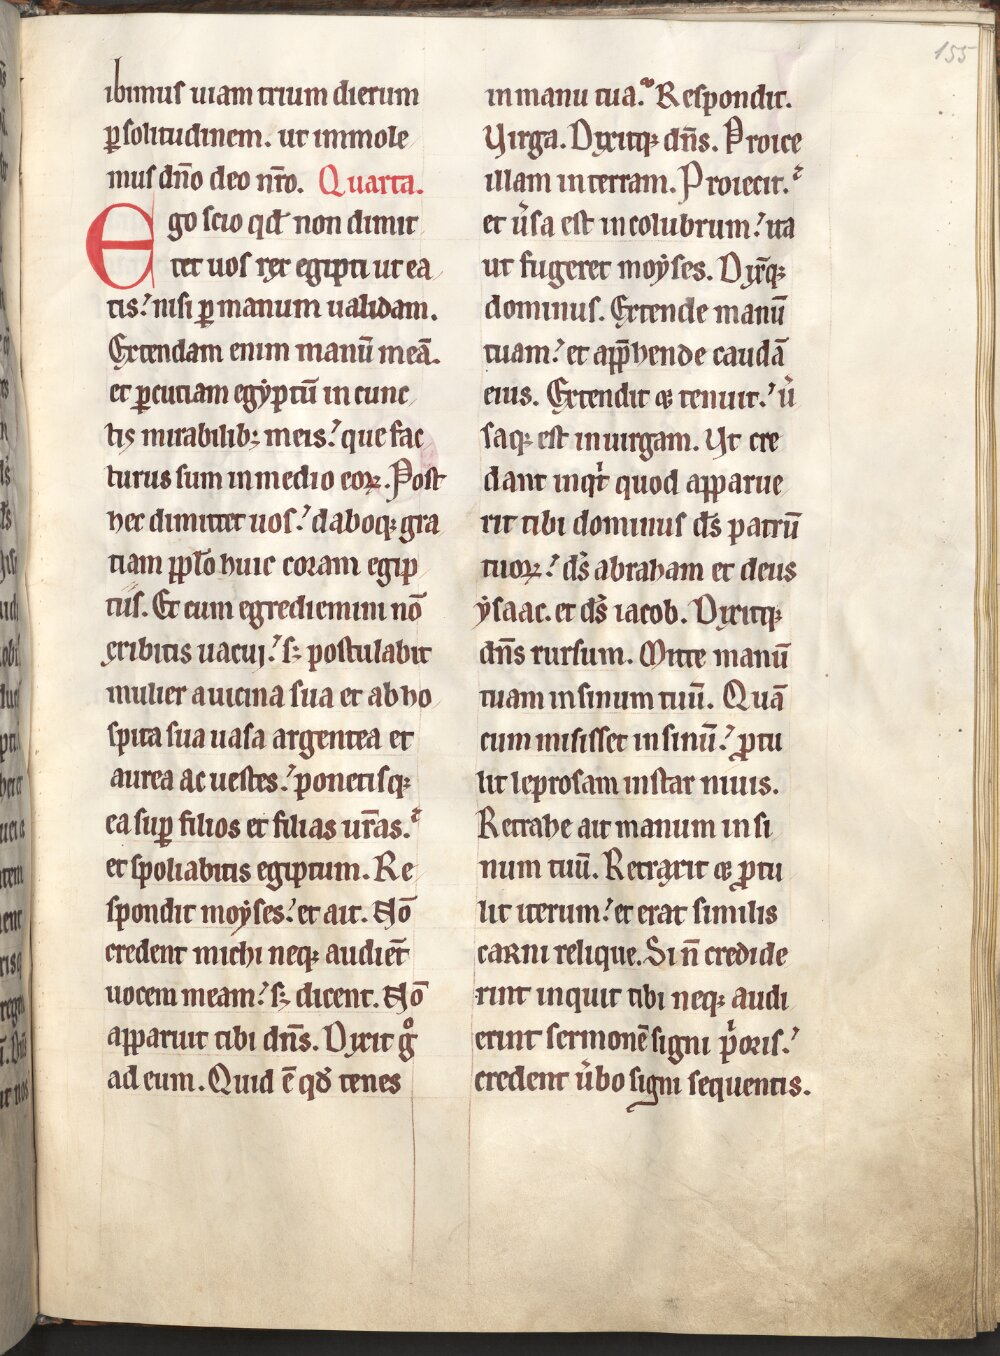 155
ibimus uiam trium dierum
ꝑ solitudinem. ut immole
mus dn̄o deo nr̄o. Quarta.
Ego scio qd̄ non dimit
tet uos rex egipti ut ea
tis?' nisi ꝑ manum ualidam.
Extendam enim manū meā.
et ꝑcutiam egyptū in cunc
tis mirabilibꝫ meis?' que fac
turus sum in medio eoꝝ. Post
hec dimittet uos?' daboqꝫ gra
tiam ꝓplo huic coram egip
tiis. Et cum egrediemini nō
exibitis uacuj?' sꝫ postulabit
mulier a uicina sua et ab ho
spita sua uasa argentea et
aurea ac uestes?' ponetisqꝫ
ea suꝑ filios et filias ur̄as.'
et spoliabitis egiptum. Re
spondit moẏses?' et ait. Nō
credent michi neqꝫ audiēt
uocem meam?' sꝫ dicent. Nō
apparuit tibi dn̄s. Dixit gͦ
ad eum. Quid ē qd̄ tenes
in manu tua.' Respondit.
Uirga. Dixitqꝫ dn̄s. Proice
illam in terram. Proiecit.'
et u͛sa est in colubrum?' ita
ut fugeret moẏses. Dix̄qꝫ
dominus. Extende manū
tuam?' et app̄hende caudā
eius. Extendit & tenuit?' u͛
saqꝫ est in uirgam. Ut cre
dant inqͥt quod apparue
rit tibi dominus ds̄ patrū
tuoꝝ?' ds̄ abraham et deus
ẏsaac. et ds̄ iacob. Dixitqꝫ
dn̄s rursum. Mitte manū
tuam in sinum tuū. Quā
cum misisset in sinū?' ꝓtu
lit leprosam instar niuis.
Retrahe ait manum in si
num tuū. Retraxit & ꝓtu
lit iterum?' et erat similis
carni relique. Si n̄ credide
rint inquit tibi neqꝫ audi
erint sermonē signi pͥoris?'
credent u͛bo signi sequentis.